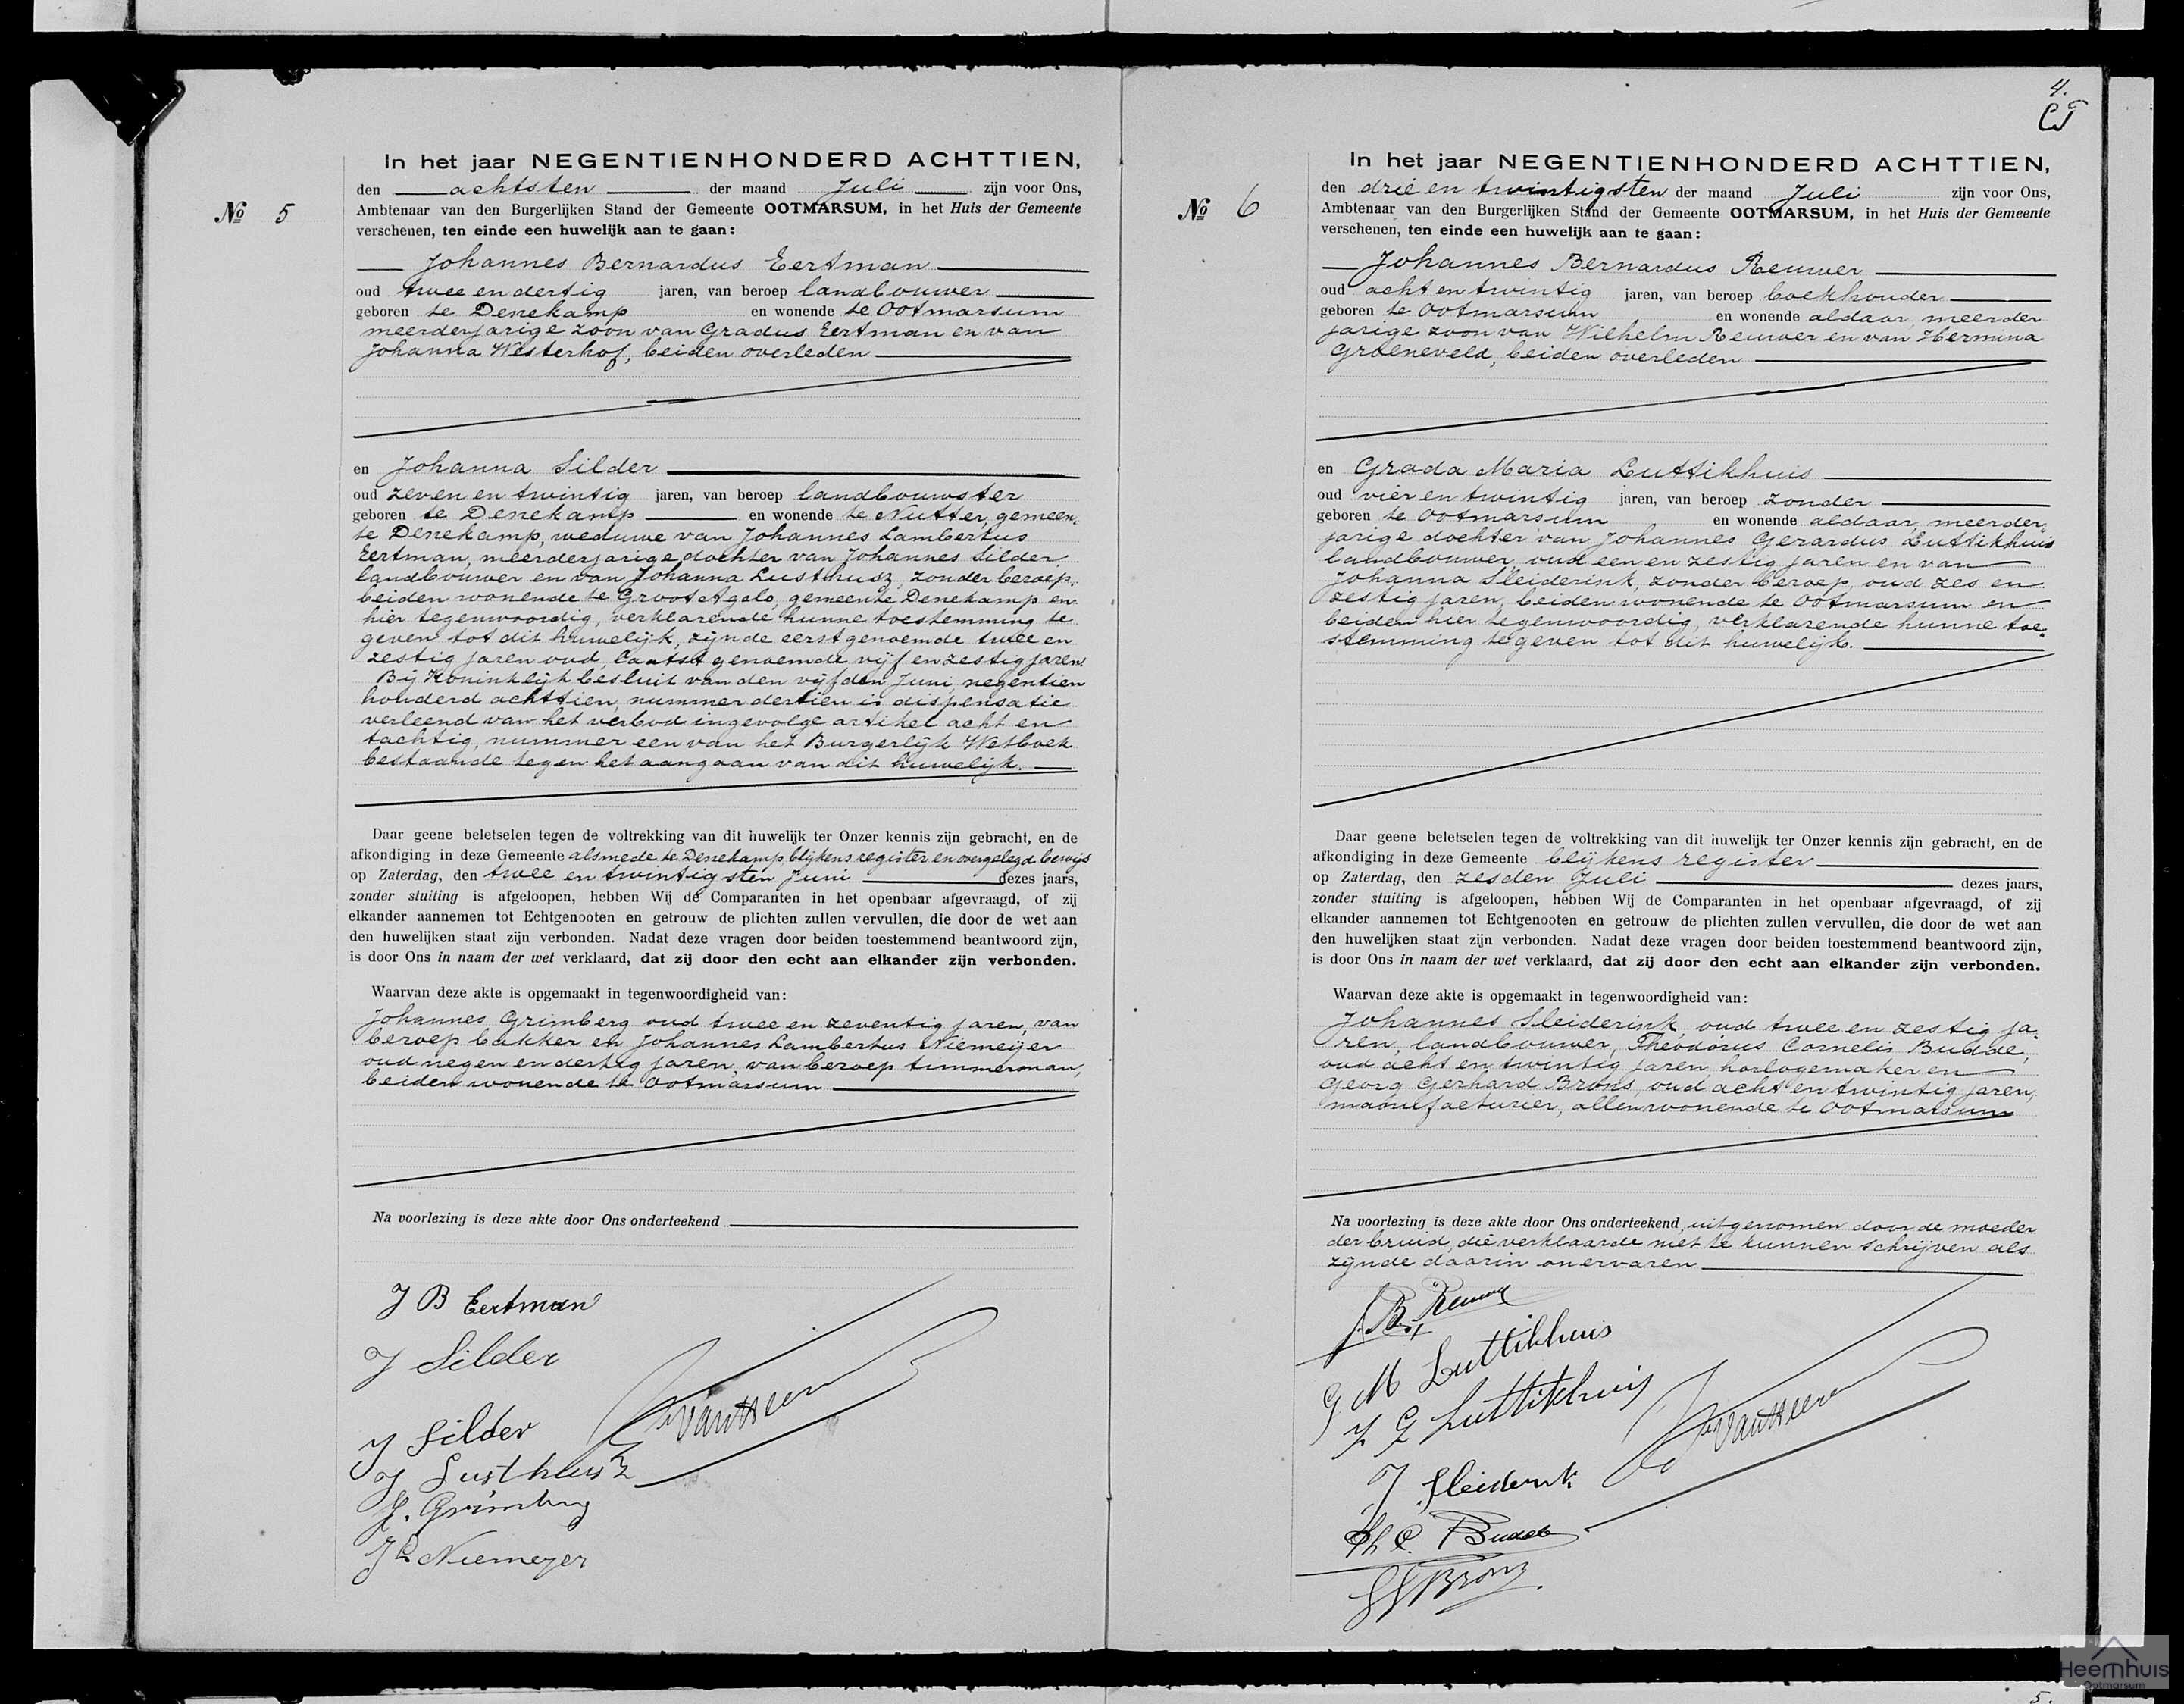 In het jaar NEGENTIENHONDERD ACHTTIEN,
den achtsten der maand Juli zijn voor Ons,
No 5
Ambtenaar van den Burgerlijken Stand der Gemeente OOTMARSUM, in het Huis der Gemeente
verschenen, ten einde een huwelijk aan te gaan:
Johannes Bernardus Eertman
oud twee en dertig jaren, van beroep landbouwer
geboren te Denekamp en wonende te Ootmarsum
meerderjarige zoon van Gradus Eertman en van
Johanna Westerhof, beiden overleden
en Johanna Silder
oud zeven en twintig jaren, van beroep landbouwster
geboren te Denekamp en wonende te Nutter, gemeen-
te Denekamp, weduwe van Johannes Lambertus
Eertman, meerderjarige dochter van Johannes Silder,
landbouwer en van Johanna Lusthusz, zonder beroep,
beiden wonende te Groot Agelo, gemeente Denekamp en
hier tegenwoordig, verklarende hunne toestemming te
geven tot dit huwelijk, zijnde eerstgenoemde twee en
zestig jaren oud, laatst genoemde vijf en zestig jaren.
Bij Koninklijk besluit van den vijfden Juni negentien
honderd achttien, nummer dertien is dispensatie
verleend van het verbod ingevolge artikel acht en
tachtig, nummer een van het Burgerlijk Wetboek
bestaande tegen het aangaan van dit huwelijk.
Daar geene beletselen tegen de voltrekking van dit huwelijk ter Onzer kennis zijn gebracht, en de
afkondiging in deze Gemeente alsmede te Denekamp, blijkens register en overgelegd bewijs
op Zaterdag, den twee en twintigsten Juni dezes jaars,
zonder stuiting is afgeloopen, hebben Wij de Comparanten in het openbaar afgevraagd, of zij
elkander aannemen tot Echtgenooten en getrouw de plichten zullen vervullen, die door de wet aan
den huwelijken staat zijn verbonden. Nadat deze vragen door beiden toestemmend beantwoord zijn,
is door Ons in naam der wet verklaard, dat zij door den echt aan elkander zijn verbonden.
Waarvan deze akte is opgemaakt in tegenwoordigheid van:
Johannes Grimberg oud twee en zeventig jaren, van
beroep bakker en Johannes Lambertus Niemeijer
oud negen en dertig jaren, van beroep timmerman,
beiden wonende te Ootmarsum
Na voorlezing is deze akte door Ons onderteekend
J B Eertman
J Silder
J Silder
J Lusthusz
J. Grimberg
J L Niemeyer
4.
In het jaar NEGENTIENHONDERD ACHTTIEN,
den drie en twintigsten der maand Juli zijn voor Ons,
No 6
Ambtenaar van den Burgerlijken Stand der Gemeente OOTMARSUM, in het Huis der Gemeente
verschenen, ten einde een huwelijk aan te gaan:
Johannes Bernardus Reuwer
oud acht en twintig jaren, van beroep boekhouder
geboren te Ootmarsum en wonende aldaar, meerder
jarige zoon van Wilhelm Reuwer en van Hermina
Groeneveld, beiden overleden
en Grada Maria Luttikhuis
oud vier en twintig jaren, van beroep zonder
geboren te Ootmarsum en wonende aldaar, meerder-
jarige dochter van Johannes Gerardus Luttikhuis
landbouwer, oud een en zestig jaren en van
Johanna Sleiderink, zonder beroep, oud zes en
zestig jaren, beiden wonende te Ootmarsum en
beiden hier tegenwoordig, verklarende hunne toe-
stemming te geven tot dit huwelijk.
Daar geene beletselen tegen de voltrekking van dit huwelijk ter Onzer kennis zijn gebracht, en de
afkondiging in deze Gemeente blijkens register
op Zaterdag, den zesden Juli dezes jaars,
zonder stuiting is afgeloopen, hebben Wij de Comparanten in het openbaar afgevraagd, of zij
elkander aannemen tot Echtgenooten en getrouw de plichten zullen vervullen, die door de wet aan
den huwelijken staat zijn verbonden. Nadat deze vragen door beiden toestemmend beantwoord zijn,
is door Ons in naam der wet verklaard, dat zij door den echt aan elkander zijn verbonden.
Waarvan deze akte is opgemaakt in tegenwoordigheid van:
Johannes Sleiderink, oud twee en zestig ja-
ren, landbouwer, Theodorus Cornelis Budde,
oud acht en twintig jaren, horlogemaker en
Georg Gerhard Brons, oud acht en twintig jaren,
manufacturier, allen wonende te Ootmarsum
Na voorlezing is deze akte door Ons onderteekend, uitgenomen door de moeder
der bruid, die verklaarde niet te kunnen schrijven als
zijnde daarin onervaren
J. B. Reuwer
G M Luttikhuis
J G Luttikhuis
J Sleiderink
Th C. Budde
G G Brons
Heemhuis
Ootmarsum
5.